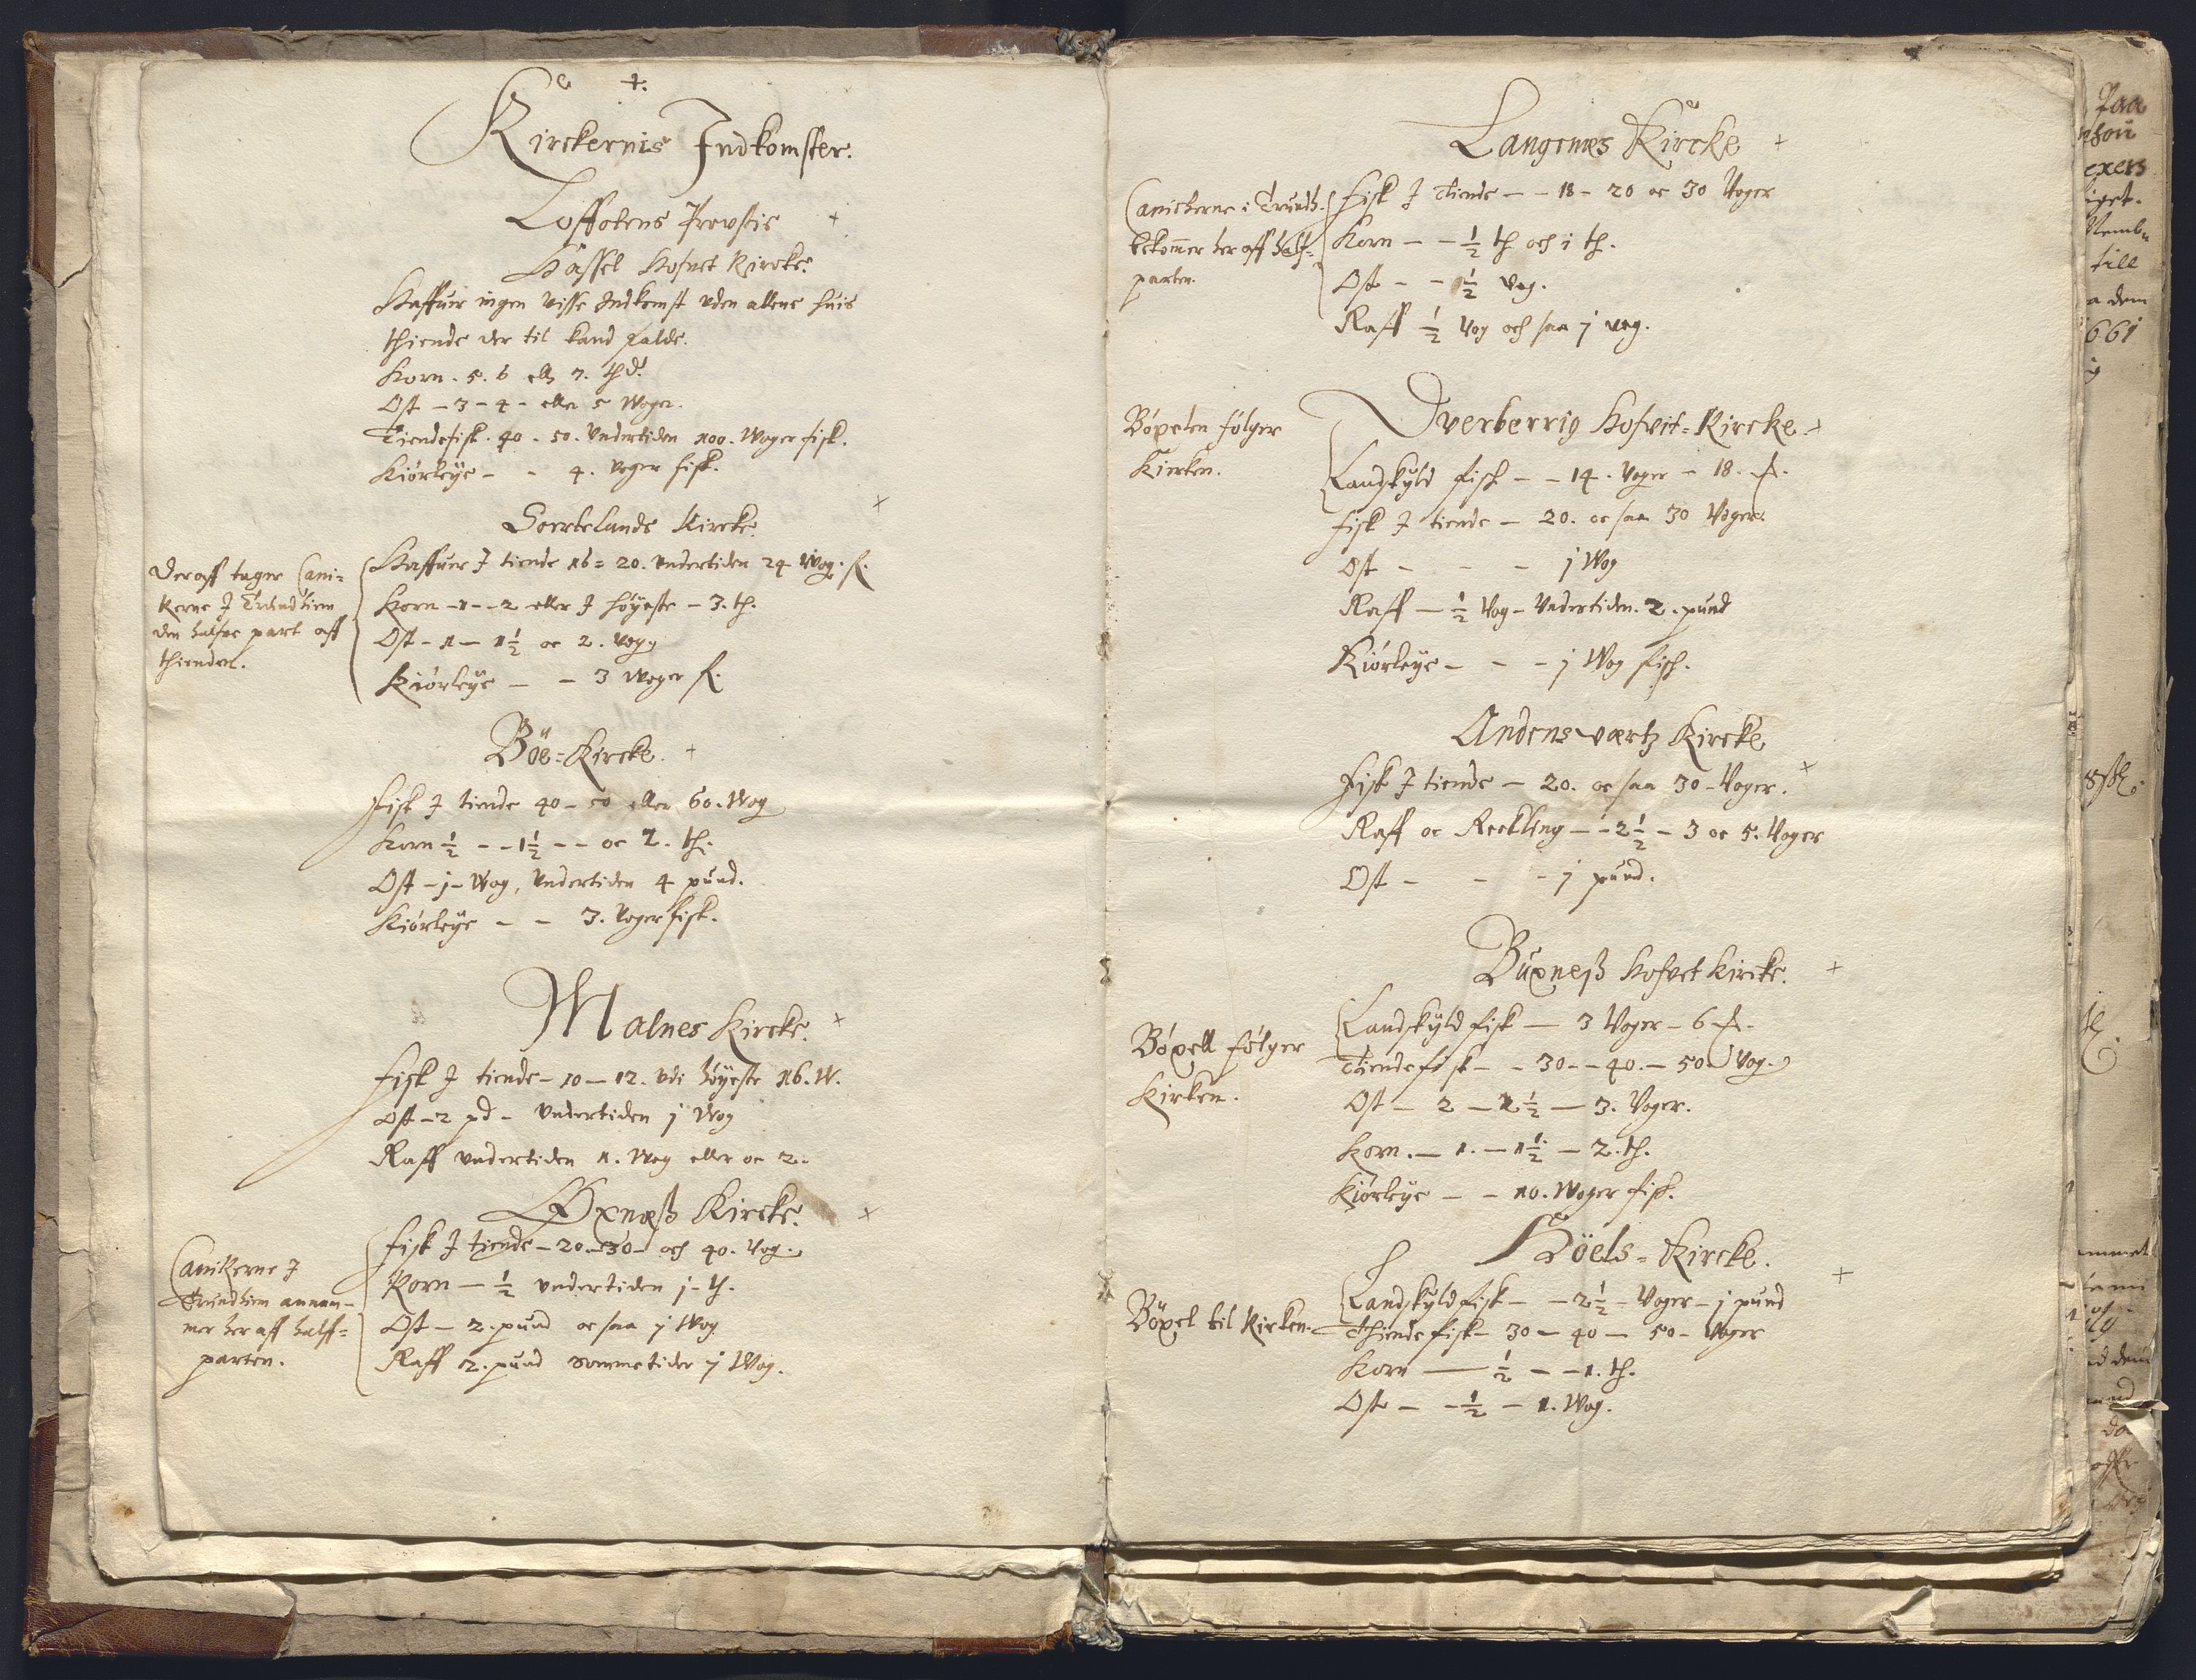 +.
Kirckernis Indkomster.
Loffotens Prowstie +
Hassel Hofvet Kircke.
Haffuer ingen Visse Indkomst uden allene huis
thiende der til kand falde.
Korn. 5. 6 ell 7. thd.
Ost – 3 – 4 – eller 5 Woger.
Tiendefisk. 40. 50. Undertiden 100. Woger fisk.
Kiörleÿe – – 4. Voger fisk.
Soertelands Kircke. +
Deraff tager Cani=
kerne I Trundhiem
den halfve part aff
thienden.
Haffuer I tiende 16 = 20. undertiden 24 Wog. f.
Korn – 1 – – 2 eller I höÿeste – 3. th.
Ost – 1 – 1½ oc 2. vog
Kiörleÿe – – 3 Woger f.
Böe=Kircke. +
Fisk I tiende 40 – 50 eller 60. Wog
Korn ½ – – 1½ – – oc 2. th.
Ost – j – Wog, Undertiden 4 pund.
Kiörleÿe – – 3. Voger fisk.
Malnes Kircke. +
Fisk I tiende – 10 – 12. Udi höÿeste 16. W.
Ost – 2 pd – Undertiden j Wog
Raff undertiden 1. Wog eller oc 2.
Öxnæß Kircke. +
Canikerne I
Trundhiem annam-
mer her aff halff=
parten.
Fisk I tiende – 20 – 30 – och 40. Vog.
Korn – ½ undertiden j – th.
Ost – 2. pund oc saa j Wog
Raff 2. pund sommetider j Wog.
Langenes Kircke +
Canicherne i Trundh.
bekommer her aff half=
parten.
Fisk I Tiende – – 18 – 20 oc 30 Voger
Korn – – ½ th och 1 th.
Ost – – ½ Vog.
Raff ½ Vog och saa j vog.
Dverberrig Hofvit=Kircke. +
Böxelen fölger
Kirken.
Landskÿld fisk – – 14. Voger – 18. .
Fisk I tiende – 20. oc saa 30 Voger.
Ost – – – j Wog
Raff – ½ Vog – Undertiden. 2. pund
Kiörleÿe – – – j Wog fisk.
Andenes værtz Kircke
Fisk I tiende – 20. oc saa 30 – Voger. +
Raff oc Reckling – – 2½ – 3 oc 5. Voger
Ost – – – j pund.
Buxneß Hofvet Kircke. +
Böxell fölger
Kirken.
Landskÿld fisk – 3 Voger – 6
Tiendefisk – – 30 – – 40. – 50 Vog.
Ost – 2 – 2½ – 3. Voger.
Korn. – 1. – 1½ – 2. th.
Kiörleÿe – – 10. Woger fisk.
Höels=Kircke. +
Böxel til Kirken.
Landskÿld fisk – – 2½ – Voger – j pund
Thiende fisk – 30 – 40 – 50 – Woger
Korn – ½ – – 1. th.
Ost – – ½ – 1. Wog.